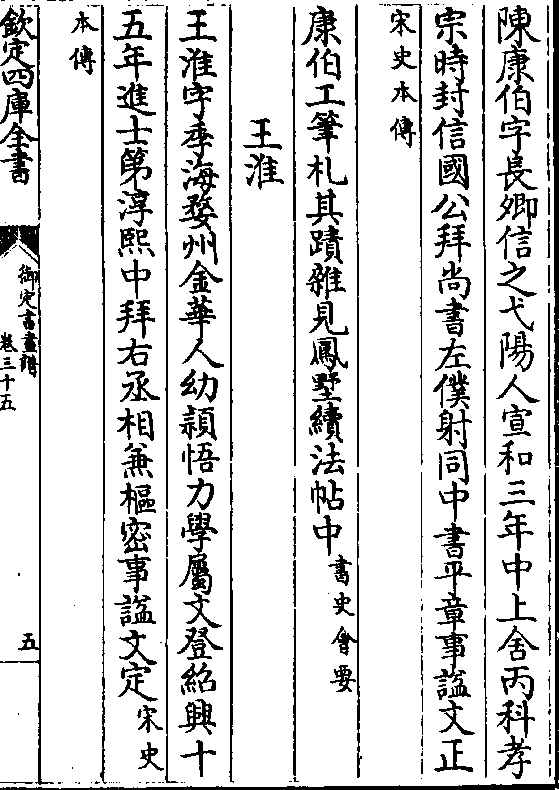 陳康伯字長卿信之弋陽人宣和三年中上舍丙科孝
宗時封信國公拜尚書左僕射同中書平章事諡文正
宋史本傳
康伯工筆札其蹟雜見鳳墅續法帖中書史會要
王淮
王淮字季海婺州金華人幼穎悟力學屬文登紹興十
五年進士第淳熙中拜右丞相兼樞密事諡文定宋史
本傳
欽定四庫全書
御定書畫譜
卷三十五
五